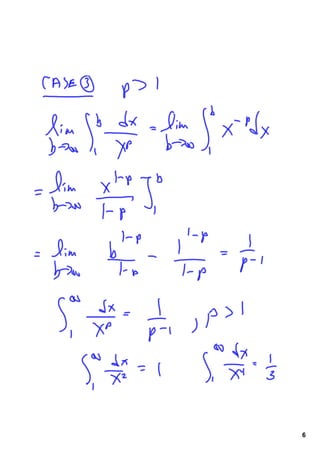 CASE ③ p > 1
lim b→∞ ∫₁ᵇ dx/xᵖ = lim b→∞ ∫₁ᵇ x⁻ᵖ dx
= lim b→∞ x¹⁻ᵖ/(1-p) ]₁ᵇ
= lim b→∞ b¹⁻ᵖ/(1-p) - 1¹⁻ᵖ/(1-p) = 1/(p-1)
∫₁^∞ dx/xᵖ = 1/(p-1) , p > 1
∫₁^∞ dx/x² = 1 ∫₁^∞ dx/x⁴ = 1/3
6